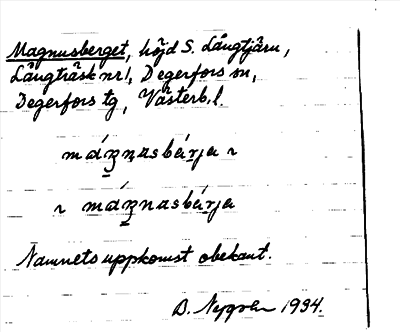 Magnusberget, höjd S. Långtjärn,
Långträsk nr 1, Degerfors sn,
Degerfors tg, Västerb. l.
máʒnasbárja ~
~ máʒnasbárja
Namnets uppkomst obekant.
B. Nygren 1934.